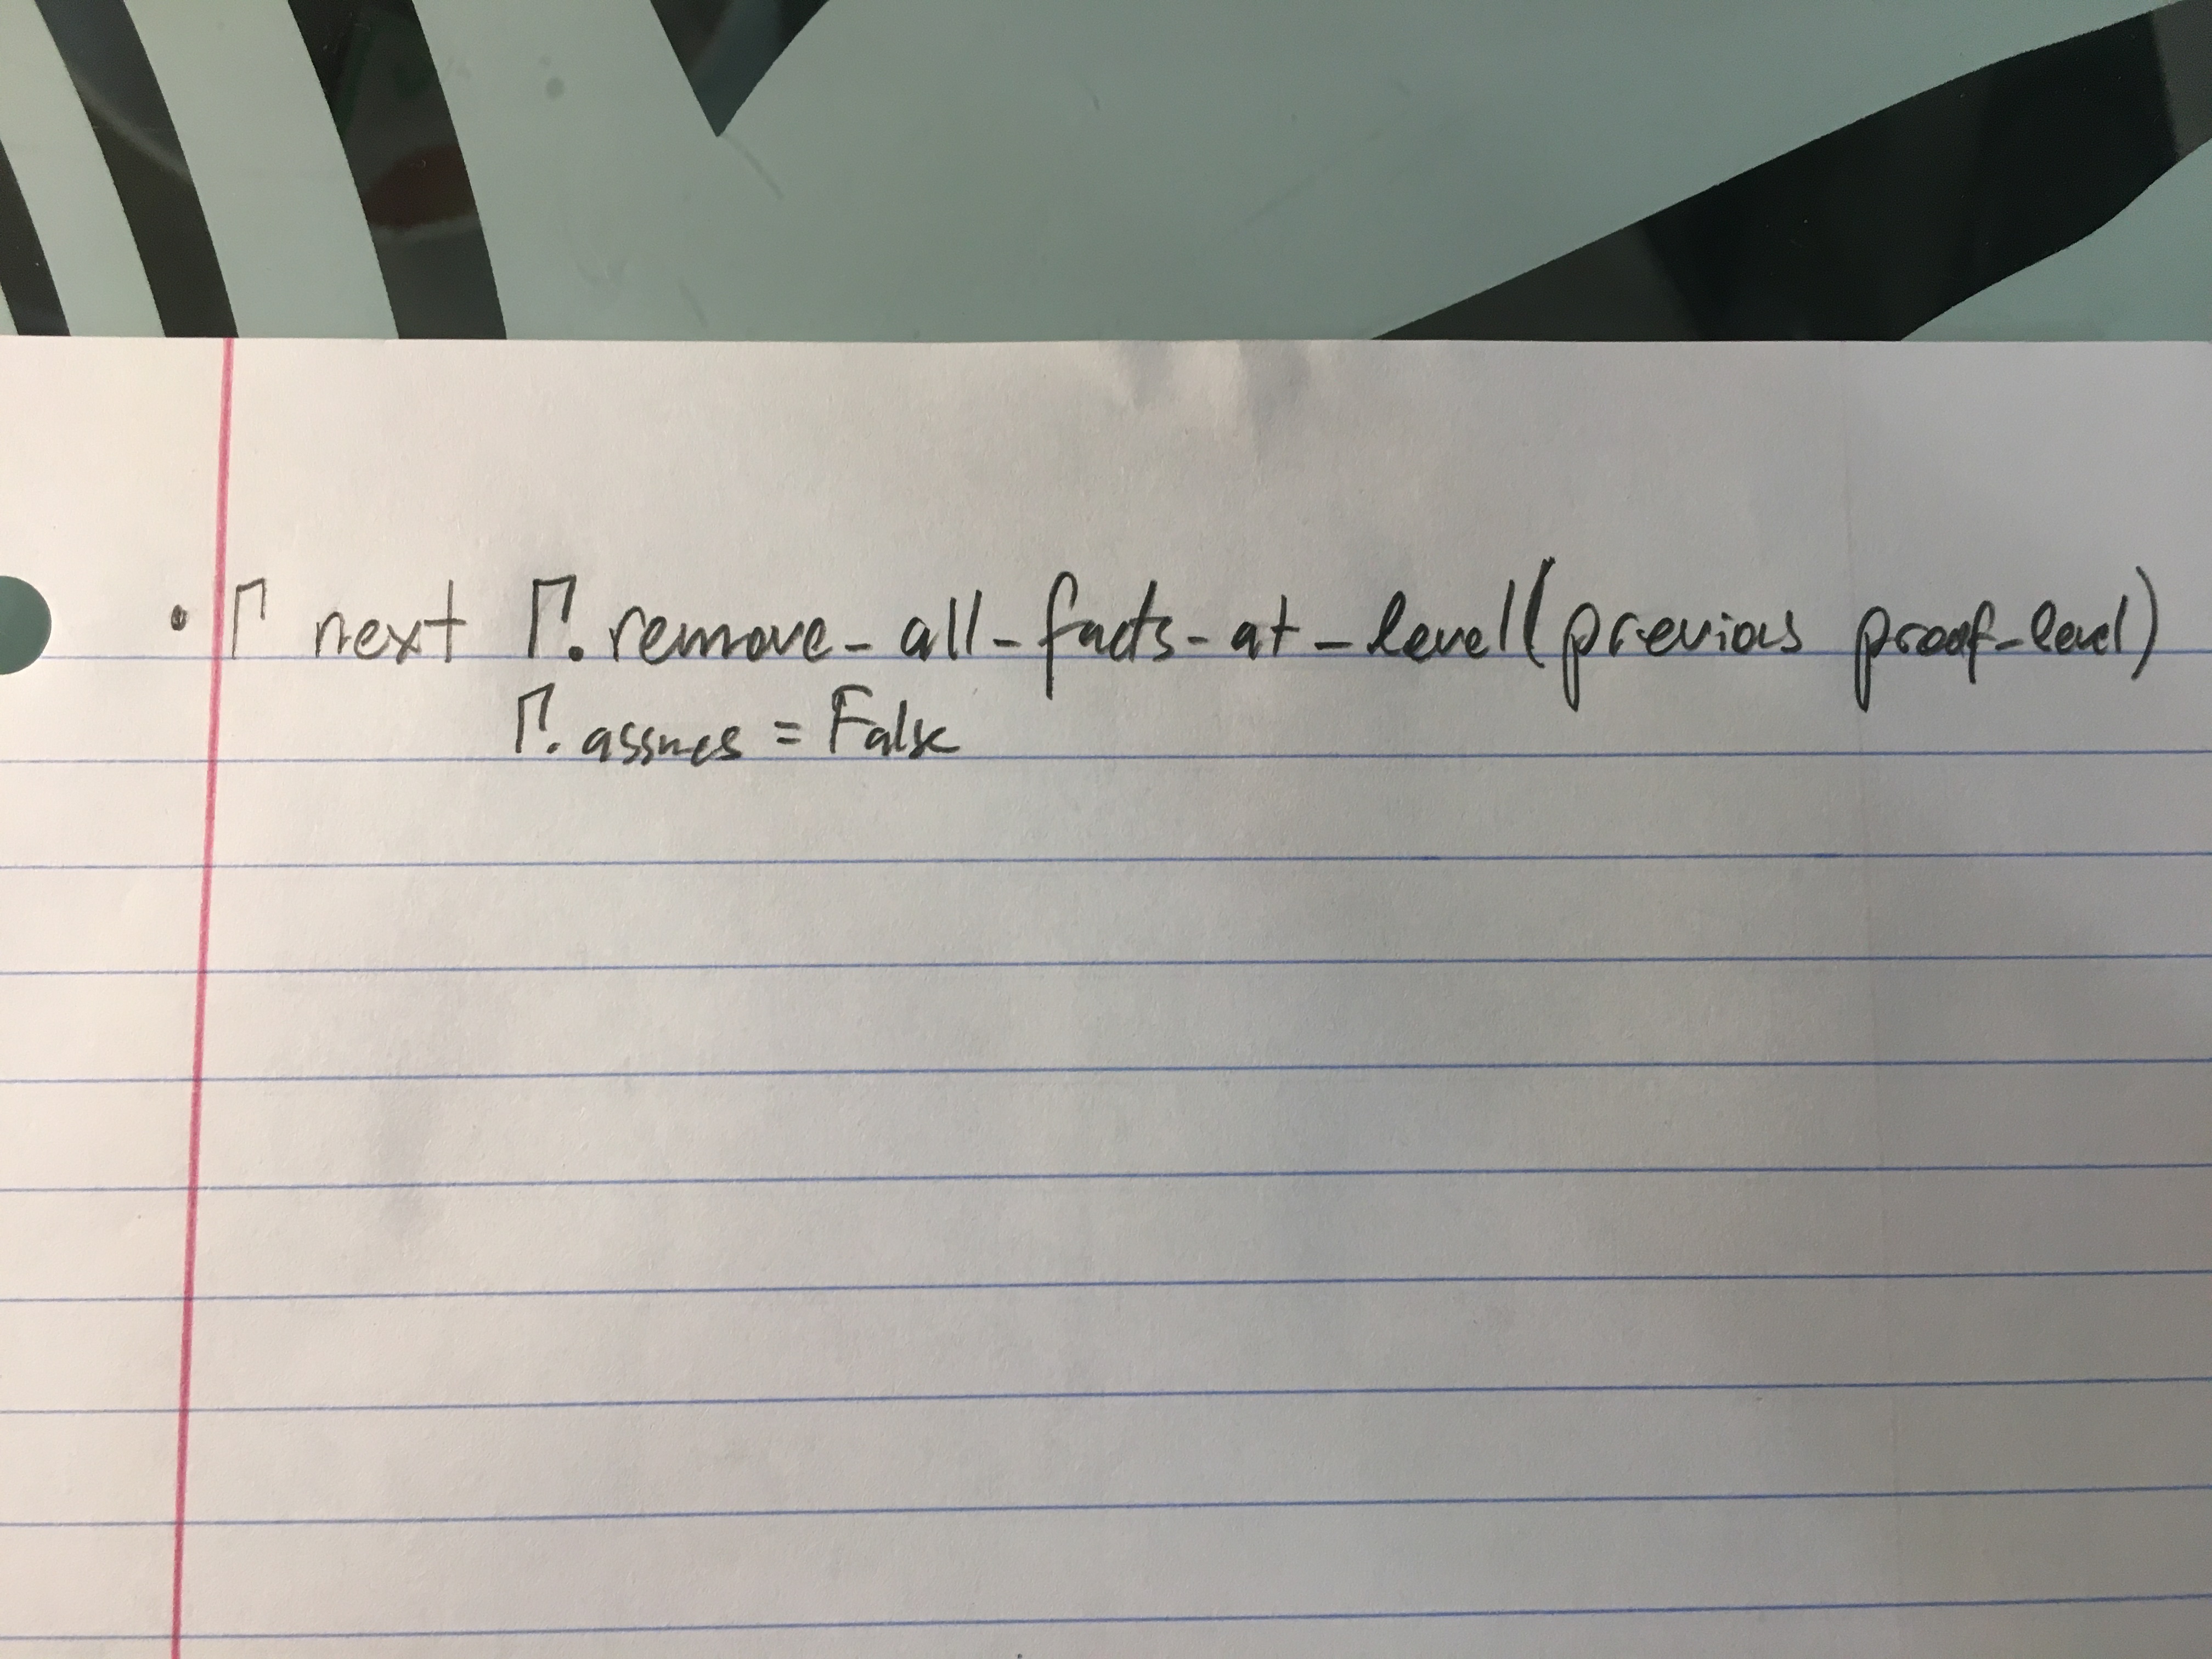 • Γ next Γ.remove-all-facts-at-level(previous proof-level)
Γ.assumes = False